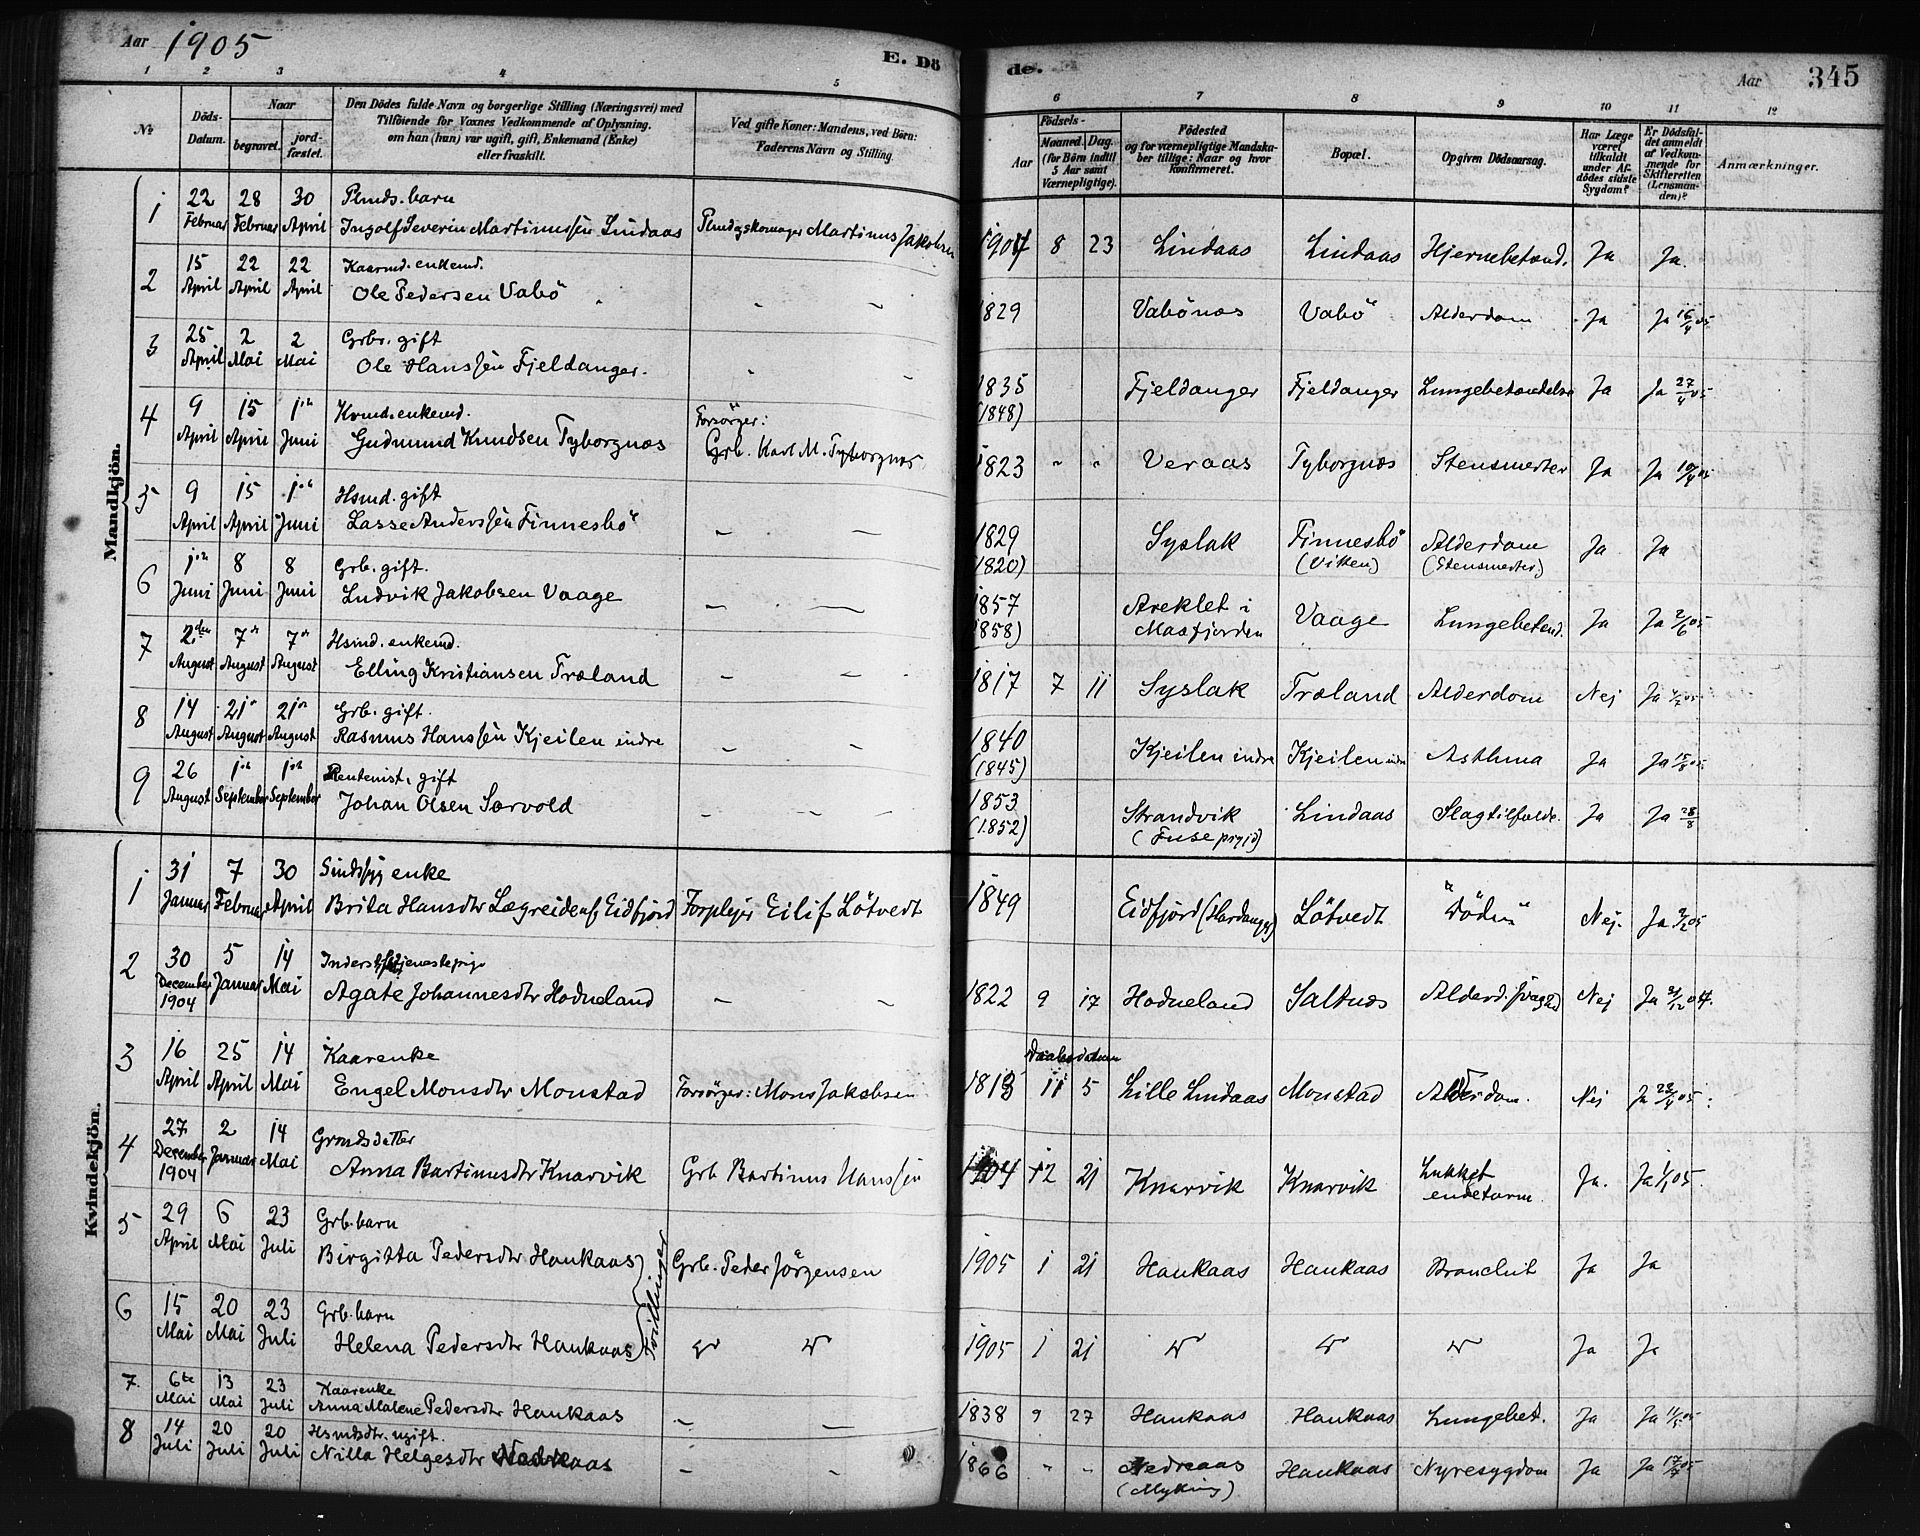 Aar 1905
E. Dö
de.
Aar
345
1 2 3 4 5 6 7 8 9 10 11 12
№
Döds-Datum.
Naar
begravet.
jordfæstet.
Den Dödes fulde Navn og borgerlige Stilling (Næringsvei) med
Tilföiende for Voxnes Vedkommende af Oplysning,
om han (hun) var ugift, gift, Enkemand (Enke)
eller fraskilt.
Ved gifte Koner: Mandens, ved Börn:
Faderens Navn og Stilling.
Födsels-
Aar
Maaned. Dag.
(for Börn indtil
5 Aar samt
Værnepligtige).
Födested
og for værnepligtige Mandskaber tillige: Naar og hvor
konfirmeret.
Bopæl.
Opgiven Dödsaarsag.
Har Læge
været
tilkaldt
under Afdödes sidste
Sygdom?
Er Dödsfaldet anmeldt
af Vedkommende for
Skifteretten
(Lensmanden)?
Anmærkninger.
Mandkjön.
1 22 Februar 28 Februar 30 April Plmds. barn
Ingolf Severin Martinussen Lindaas Martinus Jakobsen 1904 8 23 Lindaas Lindaas Hjernebetænd. Ja Ja.
2 15 April 22 April 22 April Kaarmd. enkemd.
Ole Pedersen Vabö 1829 Vabönæs Vabö Alderdom Ja Ja 16/4 05
3 25 April 2 Mai 2 Mai Grbr. gift
Ole Hanssen Fjeldanger. 1835 (1848) Fjeldanger Fjeldanger Lungebetændelse Ja Ja 27/4 05
4 9 April 15 April 1ste Juni Kvmd. enkemd.
Gudmund Knudsen Tyborgnæs Forsörger: Grb. Karl M. Tyborgnæs 1823 Veraas Tyborgnæs Stensmerter Ja Ja 10/4 05
5 9 April 15 April 1ste Juni Hsmd. gift
Lasse Anderssen Finnesbö 1829 (1820) Syslak Finnesbö (Vikken) Alderdom (Stensmerter) Ja Ja
6 1ste Juni 8 Juni 8 Juni Grb. gift.
Ludvik Jakobsen Vaage 1857 (1858) Areklet i Masfjorden Vaage Lungebetænd. Ja Ja 2/6 05
7 2den August 7de August 7de August Hsmd. enkemd.
Elling Kristiansen Træland 1817 7 11 Syslak Træland Alderdom Nej Ja
8 14 August 21de August 21de August Grb. gift.
Rasmus Hanssen Kjeilen indre 1840 (1845) Kjeilen indre Kjeilen indre Asthma Ja Ja 15/8 05
9 26 August 1ste September 1ste September Rentenist, gift
Johan Olsen Sørvold 1853 (1852) Strandvik (Fuse prgjd) Lindaas Slagtilfælde. Ja Ja 28/8
Kvindekjön.
1 31 Januar 7 Februar 30 April Sindssyg enke
Brita Hansdtr Lægreid Eidfjord Forplejer Eilif Lötvedt 1849 Eidfjord (Hardanger) Lötvedt Nej. Ja 2/2 05
2 30 December 1904 5 Januar 14 Mai
Agate Johannesdtr Hodneland 1822 9 17 Hodneland Saltnæs Nej Ja 31/12 04.
3 16 April 25 April 14 Mai Kaarenke
Engel Monsdtr Monstad Forsörger: Mons Jakobsen 1813 Daabsdatum 11 5 Lille Lindaas Monstad Alderdom. Nej Ja 23/4 05
4 27 December 1904 2 Januar 14 Mai Grmdsdatter
Anna Bartinusdtr Knarvik Grb Bartinus Hanssen 1904 12 21 Knarvik Knarvik Lukket endetarm Ja. Ja 1/1 05.
5 29 April 6 Mai 23 Juli Grb. barn
Birgitta Pedersdtr Haukaas Tvillinger Grb. Peder Jörgensen 1905 1 21 Haukaas Haukaas Bronchit Ja Ja
6 15 Mai 20 Mai 23 Juli Grb. barn
Helena Pedersdtr Haukaas 1905 1 21 Ja Ja
7. 6te Mai 13 Mai 23 Juli Kaarenke
Anna Malene Pedersdtr Haukaas 1838 9 27 Haukaas Haukaas Lungebet. Ja Ja
8 14 Juli 20 Juli 20 Juli Hsmdsdtr. ugift.
Nilla Helgesdtr 1866 Nedreaas (Myking) Haukaas Nyresygdom Ja Ja 17/7 05